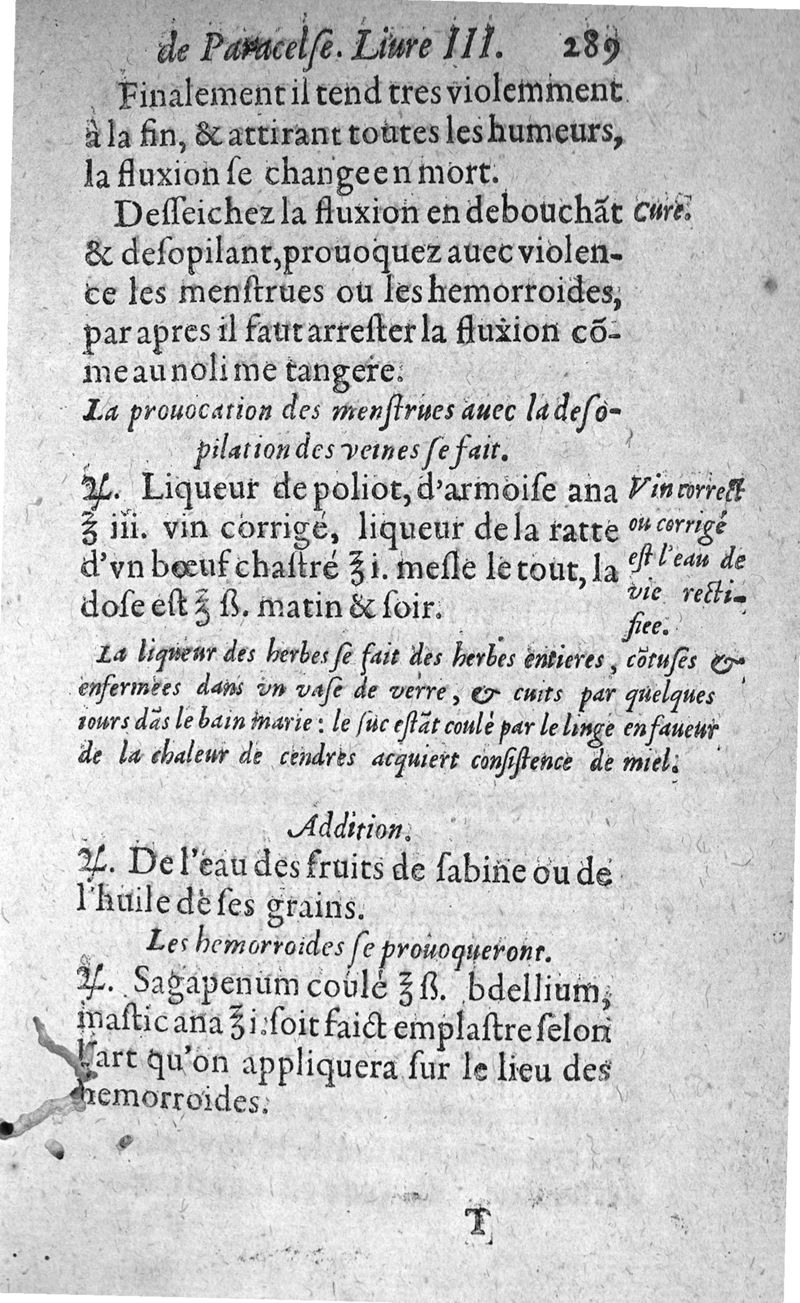 de Paracelſe. Liure III. 289
Finalement il tend tres violemment
à la fin, & attirant toutes les humeurs,
la fluxion ſe change en mort.
Deſſeichez la fluxion en debouchãt
Cure.
& deſopilant, prouoquez auec violen-
ce les menſtrues ou les hemorroides,
par apres il faut arreſter la fluxion cõ-
me au noli me tangere.
La prouocation des menſtrues auec la deſo-
pilation des veines ſe fait.
♃. Liqueur de poliot, d'armoiſe ana
℥ iii. vin corrigé, liqueur de la ratte
d'vn bœuf chaſtré ℥ i. meſle le tout, la
doſe eſt ℥ ß. matin & ſoir.
Vin correct
ou corrigé
eſt l'eau de
vie recti-
fiee.
La liqueur des herbes ſe fait des herbes entieres, cõtuſes &
enfermees dans vn vaſe de verre, & cuits par quelques
iours dãs le bain marie: le ſuc eſtãt coulé par le linge en faueur
de la chaleur de cendres acquiert conſiſtence de miel.
Addition.
♃. De l'eau des fruits de ſabine ou de
l'huile de ſes grains.
Les hemorroides ſe prouoqueront.
♃. Sagapenum coulé ℥ ß. bdellium,
maſtic ana ℥ i. ſoit faict emplaſtre ſelon
l'art qu'on appliquera ſur le lieu des
hemorroides.
T